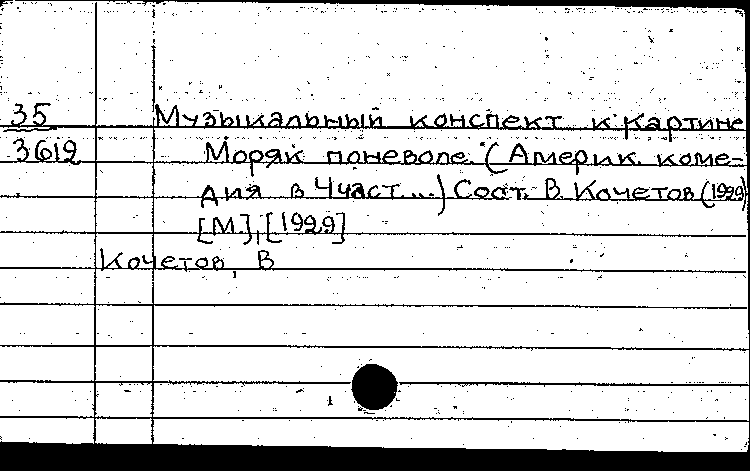 35 Музыкальный конспект к картине
3612 Моряк поневоле. (Америк. коме-
дия в 4 част....) Сост. В. Кочетов (1929)
[М.], [1929]
Кочетов, В